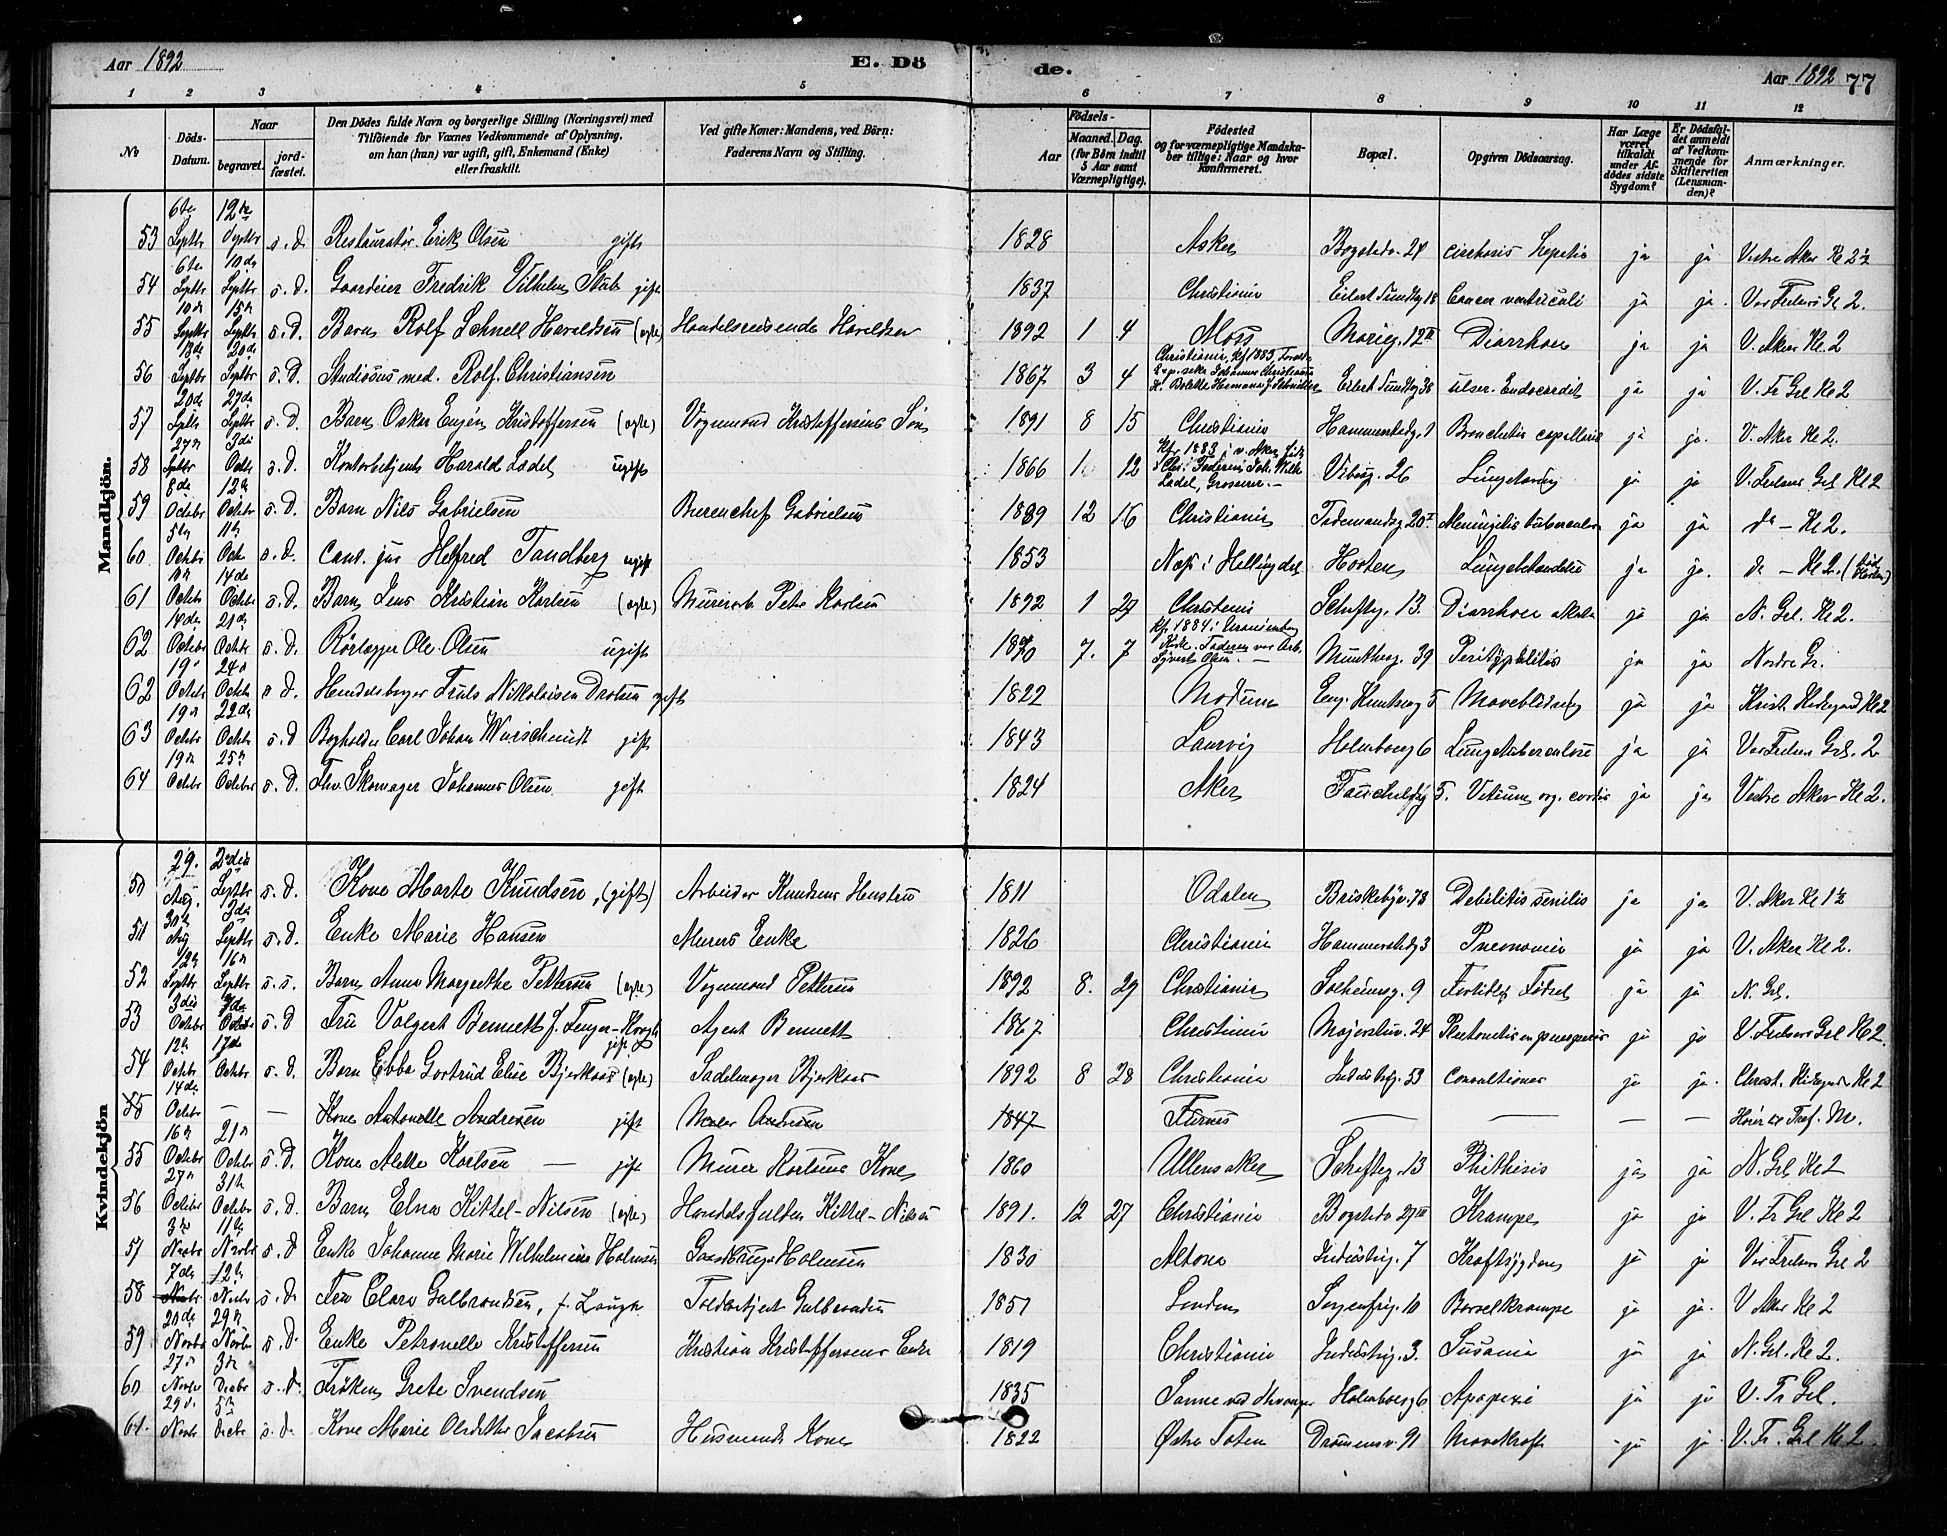 Aar 1892 E. Dö de. Aar 1892 77
1 2 3 4 5 6 7 8 9 10 11 12
No Döds-Datum. Naar begravet. jordfæstet. Den Dödes fulde Navn og borgerlige Stilling (Næringsvei) med Tilföiende for Voxnes Vedkommende af Oplysning, om han (hun) var ugift, gift, Enkemand (Enke) eller fraskilt. Ved gifte Koner: Mandens, ved Börn: Faderens Navn og Stilling. Födsels- Aar Maaned. Dag. (for Børn indtil 5 Aar samt Værnepligtige). Födested og for værnepligtige Mandskaber tillige: Naar og hvor konfirmeret. Bopæl. Opgiven Dödsaarsag. Har Læge været tilkaldt under Afdödes sidste Sygdom? Er Dödsfaldet anmeldt af Vedkommende for Skifteretten (Lensmanden)? Anmærkninger.
Mandkjön.
53 6te Septbr 12te Septbr s. D. Restauratør Erik Olsen gift 1828 Asker Bogstedv. 24 cirrhosis hepatis ja ja Vestre Aker Kl 2½
54 6te Septbr 10de Septbr s. D. Gaardeier Fredrik Vilhelm Stub gift 1837 Christiania Eilert Sundtsg 18 Cancer ventriculi ja ja Vor Frelsers Gl 2.
55 10de Septbr 15de Septbr s. D. Barn Rolf Schnell Haraldsen (ægte) Handelsreisende Haraldsen 1892 1 4 Moss Marieg. 12 II Diarrhoe ja ja V. Aker Kl. 2
56 13de Septbr 20de Septbr s. D. Studiosus med. Rolf Christiansen 1867 3 4 Christiania, Kf 1883 Eilert Sundtsg 38 ulser. Endocardit ja ja V. Fr Grl Kl 2
57 20de Septbr 27de Septbr s. D. Barn Oskar Eugen Kristoffersen (ægte) Vognmand Kristoffersens Søn 1891 8 15 Christiania Hammerstadg. 1 Bronchitis capillaris ja ja. V. Aker Kl 2.
58 27de Septbr 3die Octbr s. D. Kontorbetjent Harald Ladel ugift 1866 12 Kf. 1883 i v. Aker Faderen Joh. Wilh Ladel, Grosserer. — Viborg. 26 ja ja V. Frelsers Grl Kl 2
59 8de Octobr 12te Octobr s. D. Barn Nils Gabrielsen Bureauchef Gabrielsen 1889 12 16 Christiania Tidemandsg 20 I Meningitis tuberculos ja ja do — Kl 2.
60 5te Octobr 11te Oct. s. D. Cand. jur Helfred Tandberg ugift 1853 Næs i Hallingdal Horten ja ja. do — Kl 2.
61 10de Octbr 14de Octobr s. D. Barn Jens Kristian Karlsen (ægte) Murerarb. Petr Karlsen 1892 1 29 Christiania Schaftg. 13. Diarrhoea ja ja N. Grl. Kl 2.
62 14de Octobr 21de Octobr s. D. Rørlægger Ole Olsen ugift 7. 7 Kf. 1884 i Uranienborg Kirke. Faderen var Arb. Syvert Olsen. — Munthesg. 39 Perityphlitis ja ja Nordre Gr.
62 19de Octobr 24de Octbr s D. Handelsborger Truls Nikolaisen Drolsum gift 1822 Modum Eug. Huntsvg 5 Maveblødning ja ja Krist. Kirkegaard Kl 2
63 19de Octobr 22de Octbr s. D Bogholder Carl Johan Wurschmidt gift 1843 Laurvig Holmborg 6 Lungetuberculose ja ja Vor Frelsers Grl. 2
64 19de Octobr 25de Octobr s. D. Fhv. Skomager Johannes Olsen gift 1824 Aker 5. Vitium org. cordis ja ja Vestre Aker Kl 2.
Kvindekjön
50 29. Aug. 2den Septbr s. D. Kone Marte Knudsen, (gift) Arbeider Knudsens Hustru 1811 Odalen Briskebyv. 73 Debilitis senilis ja ja V. Aker Kl 1½
51 30te Aug 3die Septbr s. D. Enke Marie Hansen Murers Enke 1826 Christiania Hammerstadg 3 Pneumonia ja ja V. Aker Kl 2.
52 12te Septbr 16de Septbr s. s. Barn Anna Margrethe Pettersen (ægte) Vognmand Pettersen 1892 8. 29 Christiania Solheimsg. 9 Fortidlig Fødsel ja ja N. Grl.
53 3die Octobr 7de Octobr s. D Fru Valgert Bennett f. Fenger-Krogh gift Agent Bennett 1867 Christiania Majorstuv. 24 ja ja V. Frelsers Grl Kl 2.
54 12te Octobr 17de Octobr s. D. Barn Ebba Gertrud Elise Bjerkaas (ægte) Sadelmager Bjerkaas 1892 8 28 Christiania Industrig. 53 Convultioner ja ja. Christ. Kirkegaard Kl 2
55 14de Octobr — — Kone Antonette Andresen gift Maler Andresen 1847 Furnes — — — — Hører til Tref. M.
55 16de Octobr 21de Octobr s. D. Kone Mette Karlsen — gift Murer Karlsens Kone 1860 Ullensaker Schaftg. 13 Phthisis ja ja N. Grl Kl 2
56 27de Octobr 31te Octobr s. D. Barn Elna Kittel-Nilsen (ægte) Handelsfuldm. Kittel-Nielsen 1891. 12 27 Christiania Bogstedv 27 III Krampe ja ja V. Fr Grl Kl 2
57 3die Novbr 11te Novbr s. D Enke Johanne Marie Wilhelmine Holmsen Gaardbruger Holmsen 1830 Altona Industrig. 7 Kræftsygdom ja ja Vor Frelsers Grl 2
58 7de Novbr 12te Novbr s. D Fru Clara Gulbrandsen, f. Lange Toldbetjent Gulbrandsen 1851 London Sorgenfrig. 10 Barselkrampe ja ja. V Aker Kl 2
59 20de Novbr 29de Novbr s. D. Enke Petronelle Kristoffersen Kristian Kristoffersens Enke 1819 Christiania Industrig. 3. ja ja N. Grl. Kl 2.
60 27de Novbr 3die Decbr s. D. Frøken Grete Svendsen 1835 Holmborg 6 Apoplexi ja ja V. Fr Grl.
61. 29de Novbr 5te Decbr s. D. Kone Marie Olsdatter Jacobsen Husmands Kone 1822 Østre Toten Drammensv. 91 Mavekræft ja ja V. Fr. Grl Kl 2.